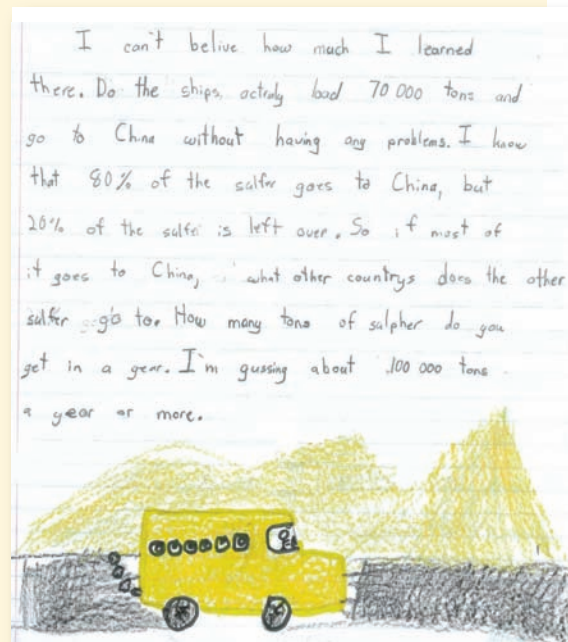 I can't belive how much I learned
there. Do the ships actualy load 70 000 tons and
go to China without having any problems. I know
that 80% of the sulfer goes to China, but
20% of the sulfer is left over. So if most of
it goes to China, what other countrys does the other
sulfer go to. How many tons of sulpher do you
get in a year. I'm gussing about 100 000 tons
a year or more.